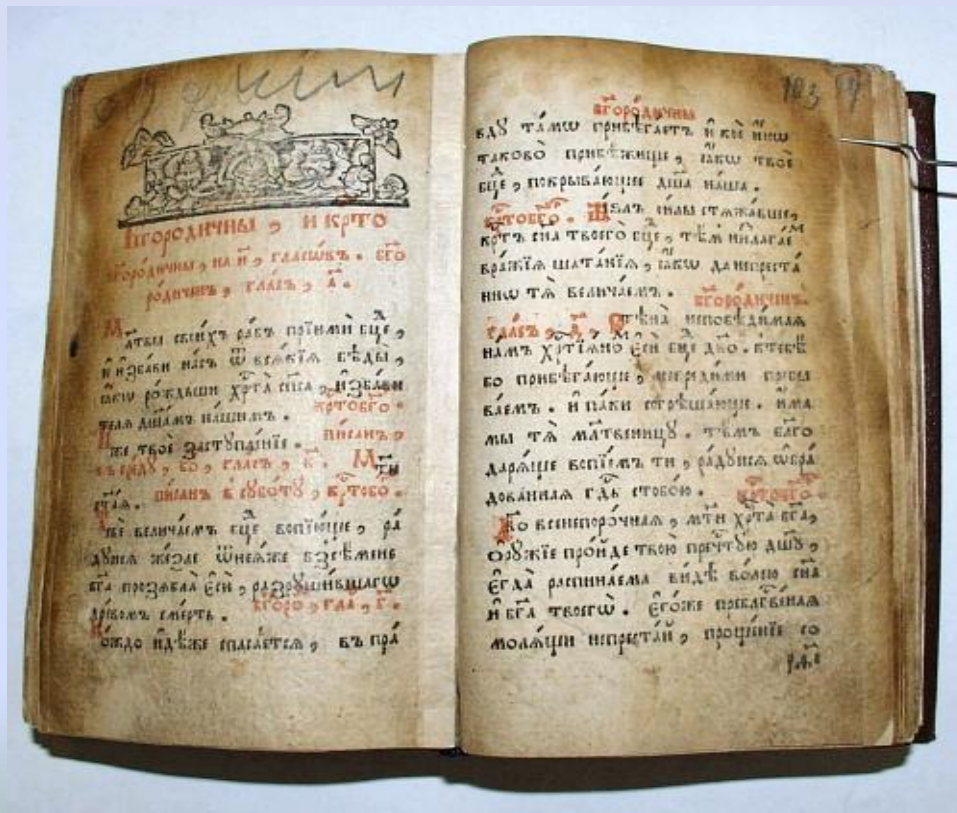 Бг҃ородичны , и крⷭ҇то
бг҃оро́дичны , на и҃ , гласѡвъ . бг҃о
ро́диченъ , гла́съ , а҃ .
Мл҃твы свои́хъ ра́бъ прїимѝ бц҃е ,
и҆ и҆зба́ви на́съ ѿ вся́кїѧ бѣды̀ ,
ꙗ҆́кѡ ро́ждьши хрⷭ҇та̀ сп҃са , и҆зба́ви
телѧ дш҃а́мъ на́шимъ .
крⷭ҇тобг҃о .
И҆́же твоѐ заступле́нїе . пи́санъ ,
въ сре́ду , бо , гла́съ , в҃ . Мт҃и
ст҃а́ѧ . пи́санъ в̾ суббо́ту , крⷭ҇тобо .
Тебѐ велича́емъ бц҃е вопїю́ще , ра́
дуйсѧ же́зле ѿнеѧ́же без̾сѣ́мене
бг҃а прозѧбла̀ є҆сѝ , разруши́вшагѡ
дре́вомъ сме́рть .
бг҃оро , гла , г҃ .
Ко́ждо и҆дѣ́же спаса́етсѧ , въ пра́
бг҃оро́дичны
вду та́мѡ прибѣга́етъ и҆ ко́е и҆́нѡ
таково̀ прибѣ́жище , ꙗ҆́кѡ твоѐ
бц҃е , покрыва́ющее дш҃а на́ша .
крⷭ҇тобг҃о . Же́злъ си́лы стѧжа́вше ,
крⷭ҇тъ сн҃а твоегѡ̀ бц҃е , тѣ́мъ низлага́е
вра́жїѧ шата́нїѧ , ꙗ҆́кѡ да непреста́
ннѡ тѧ̀ велича́емъ . бг҃оро́диченъ .
гла́съ , д҃ . Стѣна̀ непобѣди́маѧ
на́мъ хрⷭ҇тїа́нѡм є҆сѝ бц҃е дв҃о . к̾тебѣ́
бо прибѣга́юще , невреди́ми пребы
ва́емъ . и҆ па́ки согрѣша́юще . и҆́ма
мы тѧ̀ мл҃твеницу . тѣ́мъ бл҃го
дарѧ́ще вопїе́мъ ти , ра́дуйсѧ ѡ҆бра́
до́ваннаѧ гдⷭ҇ь стобо́ю . крⷭ҇тобг҃о .
Ꙗ҆́ко всенепоро́чнаѧ , мт҃и хрⷭ҇та̀ бг҃а ,
ѻ҆ру́жїе про́йде твою̀ преч҇ту́ю дш҃у ,
є҆гда̀ распина́ема ви́дѣ во́лею сн҃а
и҆ бг҃а твоегѡ̀ . є҆го́же пребл҃гве́ннаѧ
молѧ́щи непреста́й , проще́нїе со